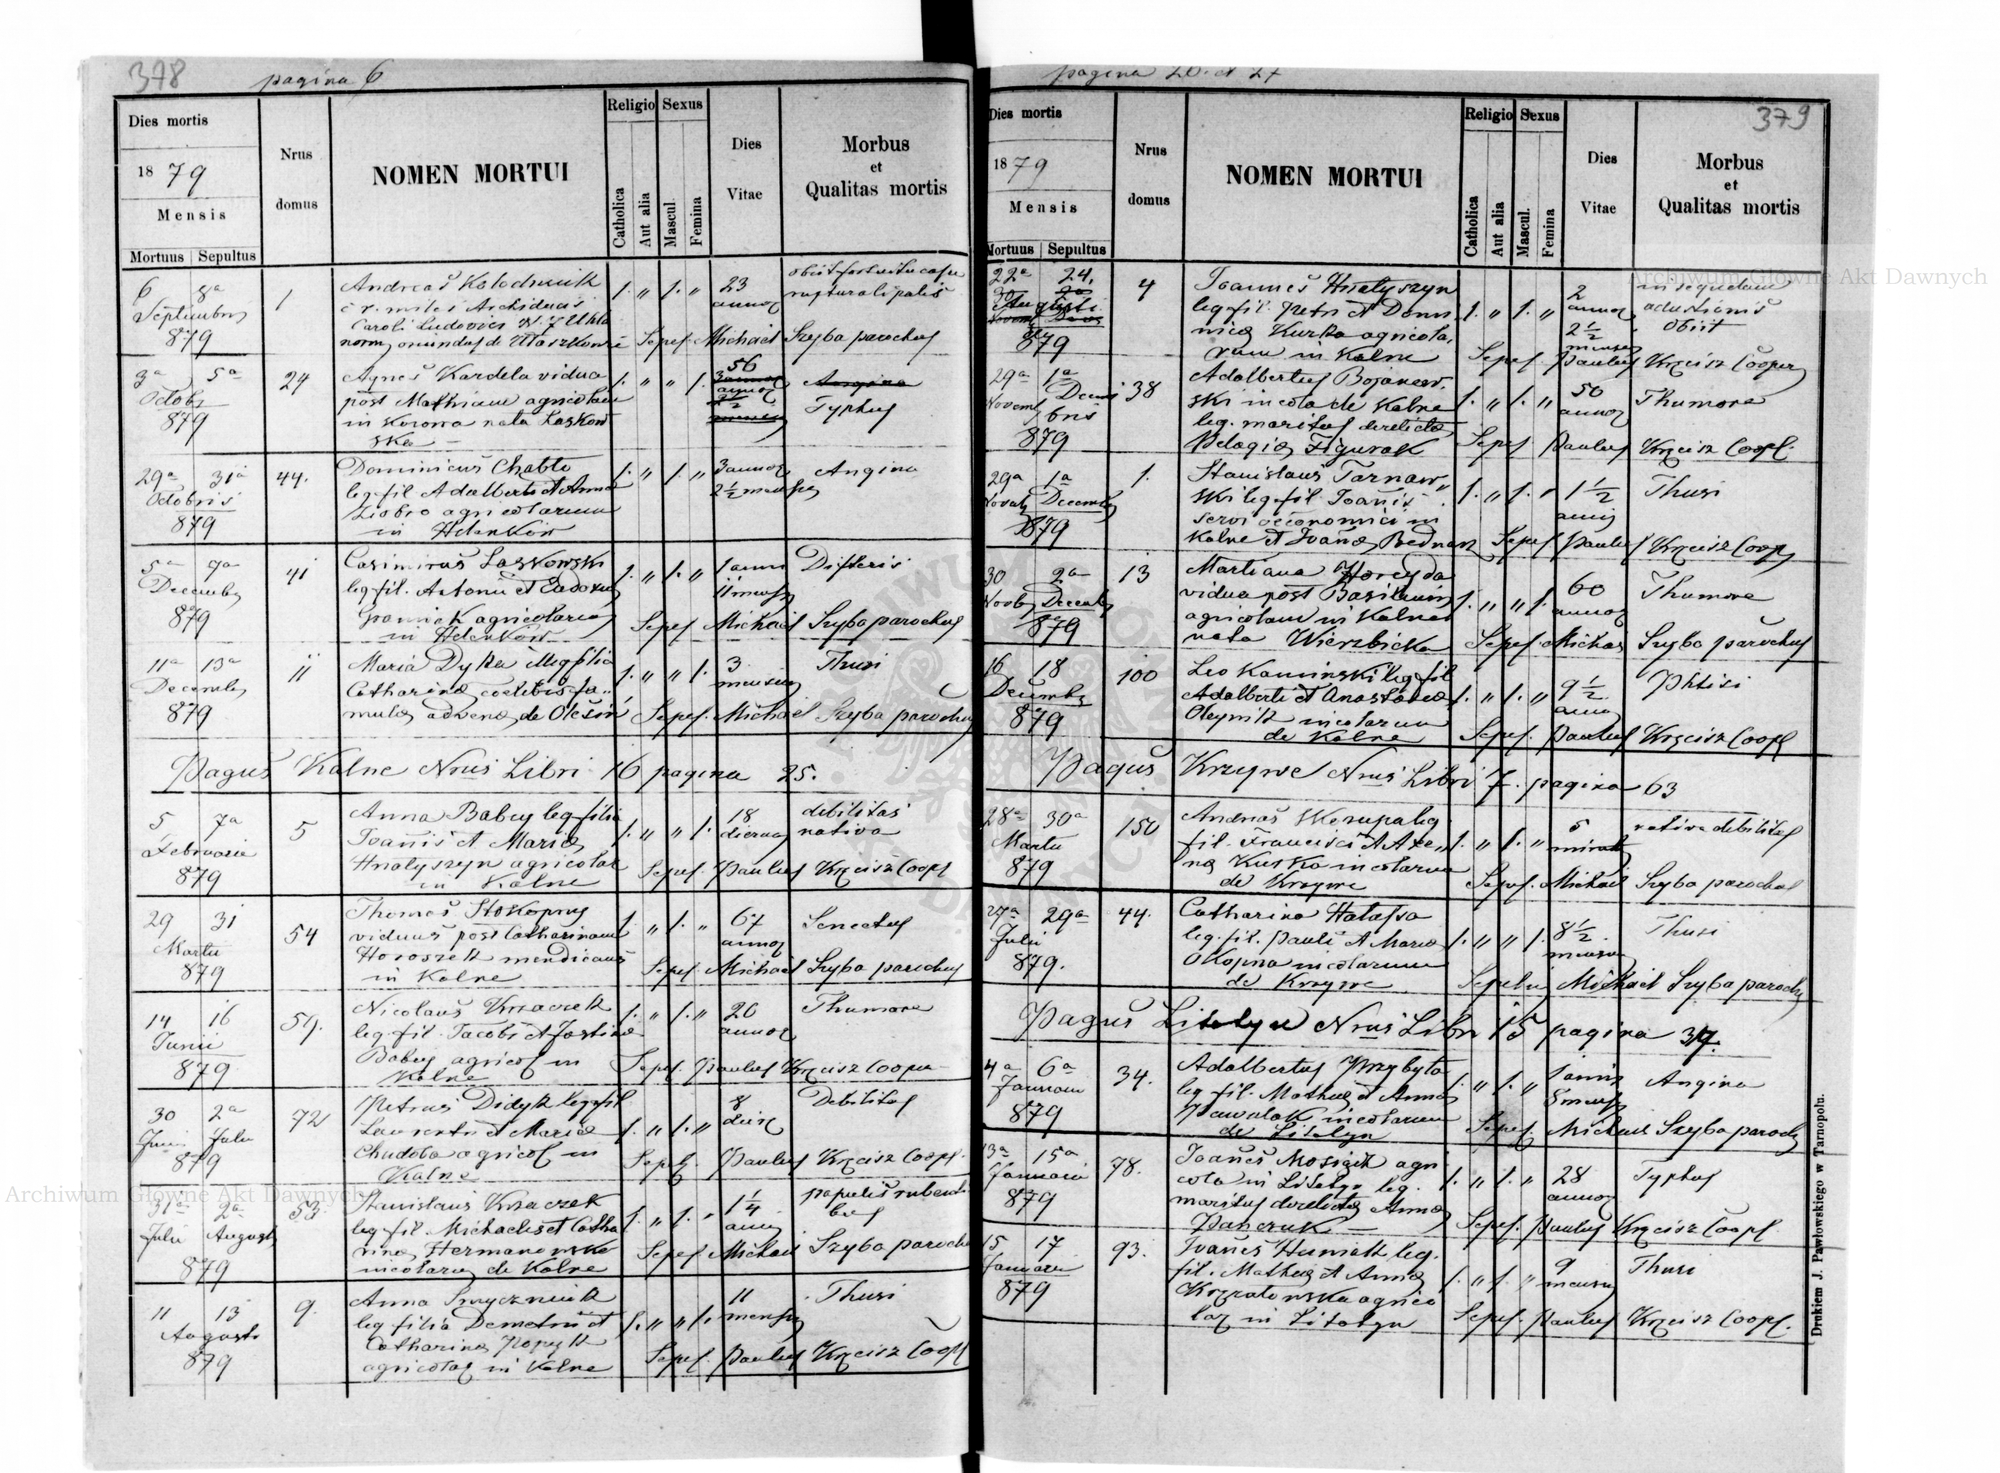 378
pagina 6
Dies mortis
1879
Mensis
Mortuus Sepultus
Nrus domus
NOMEN MORTUI
Religio
Catholica
Aut alia
Sexus
Mascul.
Femina
Dies Vitae
Morbus et Qualitas mortis
6 8a Septembris 879
1
Andreas Kolodnicik
miles Archiducis
Caroli Ludovici
1. " 1. "
23 annor
Sepel. Michael Szyba parochus
3a 5a Octobr 879
24
Agnes Kardela vidua
post Mathiam agricolam
in Korowa nata Laskow
ska
1. " " 1.
56
annor
Angina
Typhus
29a 31a Octobris 879
44.
Dominicus Chabto
leg. fil. Adalberti et Anna
Ziobro agricolarum
in Helenkow
1. " 1. "
3 annor
2 1/2 mensis
Angina
5a 7a Decembr 879
41
Casimirus Laskowski
leg. fil. Antonii et Eudoxia
agricolarum
in Helenkow
1. " 1. "
1 anni
11 mensis
Difteris
Sepel. Michael Szyba parochus
11a 13a Decembr 879
11
Maria Dyka illeg. filia
Catharina coelibis fa
mula advena de Olesin
1. " " 1.
3 mensium
Thusi
Sepel. Michael Szyba parochus
Pagus Kalne Nrus Libri 16 pagina 25.
5 7a Februarii 879
5
Anna Babey leg. filia
Joannis et Maria
Hnatyszyn agricolar
in Kalne
1. " " 1.
18 dierum
debilitas
nativa
Sepel. Paulus Krzcisz Coopl
29 31 Martii 879
54
Thomas Stokopny
viduus post Catharinam
Horoszek mendicans
in Kalne
1. " 1. "
67 annor
Senectus
Sepel. Michael Szyba parochus
14 16 Junii 879
59.
Nicolaus Krzaczek
leg. fil. Jacobi et Justina
Babey agricol in
Kalne
1. " 1. "
20 annor
Thumore
Sepel. Paulus Krzcisz Cooper
30 2a Junii Julii 879
72
Petrus Didyk leg. fil
Laurentii et Maria
Chudoba agricol in
Kalne
1. " 1. "
8 dier
Debilitas
Sepel. Paulus Krzcisz Coopl.
31a 2a Julii Augusti 879
53.
Stanislaus Krzaczek
leg. fil. Michaelis et Catha
rina Hermanowska
incolarum de Kalne
1. " 1. "
1 1/4 anni
Sepel. Michael Szyba parochus
11 13 Augusti 879
9.
Anna Smyczniuk
leg. filia Demetrii et
Catharina Popyk
agricolar in Kalne
1. " " 1.
11 mensis
Thusi
Sepel. Paulus Krzcisz Coopl
379
pagina 26. et 27
Dies mortis
1879
Mensis
Mortuus Sepultus
Nrus domus
NOMEN MORTUI
Religio
Catholica
Aut alia
Sexus
Mascul.
Femina
Dies Vitae
Morbus et Qualitas mortis
22a 24. Augusti 879
4
Joannes Hnatyszyn
leg. fil. Petri et Domi
nica Kurka agricola
rum in Kalne
1. " 1. "
2 annor
2 1/2 mensis
adustionis
obiit
Sepel. Paulus Krzcisz Cooper
29a 1a Novemb Decembris 879
38
Adalbertus Bojanow
ski incola de Kalne
leg. maritus derelicta
Pelagia Figurak
1. " 1. "
50 annor
Thumore
Sepel. Paulus Krzcisz Coopl.
29a 1a Novemb Decemb 879
1.
Stanislaus Tarnaw
ski leg. fil. Joannis
servi oeconomici in
Kalne et Bednarz
1. " 1. "
1 1/2 anni
Thusi
Sepel. Paulus Krzcisz Coopl
30 2a Novb Decemb 879
13
Martiana
vidua post Basilium
agricolam in Kalne
nata Wierzbicka
1. " " 1.
60 annor
Thumore
Sepel. Michael Szyba parochus
16 18 Decembr 879
100
Leo Kaminski leg. fil
Adalberti et Anastasia
Oleynik incolarum
de Kalne
1. " 1. "
9 1/2 anno
Phtisi
Sepel. Paulus Krzcisz Coopl
Pagus Krzywe Nrus Libri 7. pagina 63
28a 30a Martii 879
150
Andreas Skorupa leg.
fil. Francisci et Axe
nia Kuska incolarum
de Krzywe
1. " 1. "
5 minut
nativa debilitas
Sepel. Michael Szyba parochus
27a 29a Julii 879.
44.
Catharina Halassa
leg. fil. Pauli et Maria
Okopna incolarum
de Krzywe
1. " " 1.
8 1/2 mensium
Thusi
Michael Szyba parochus
Pagus Litatyn Nrus Libri 15 pagina 37.
4a 6a Januarii 879
34.
Adalbertus Przybyta
leg. fil. Mathei et Anna
Pawulak incolarum
de Litatyn
1. " 1. "
1 annis
8 mensis
Angina
Sepel. Michael Szyba parochus
13a 15a Januarii 879
78.
Joannes Mosiek agri
cola in Litatyn leg.
maritus derelicta Anna
Panczuk
1. " 1. "
28 annor
Typhus
Sepel. Paulus Krzcisz Coopl.
15 17 Januarii 879
93.
Joannes Humak leg.
fil. Mathei et Anna
Kozratowska agrico
lar in Litatyn
1. " 1. "
9 mensium
Thusi
Sepel. Paulus Krzcisz Coopl.
Drukiem J. Pawłowskiego w Tarnopolu.
Archiwum Główne Akt Dawnych
Archiwum Główne Akt Dawnych